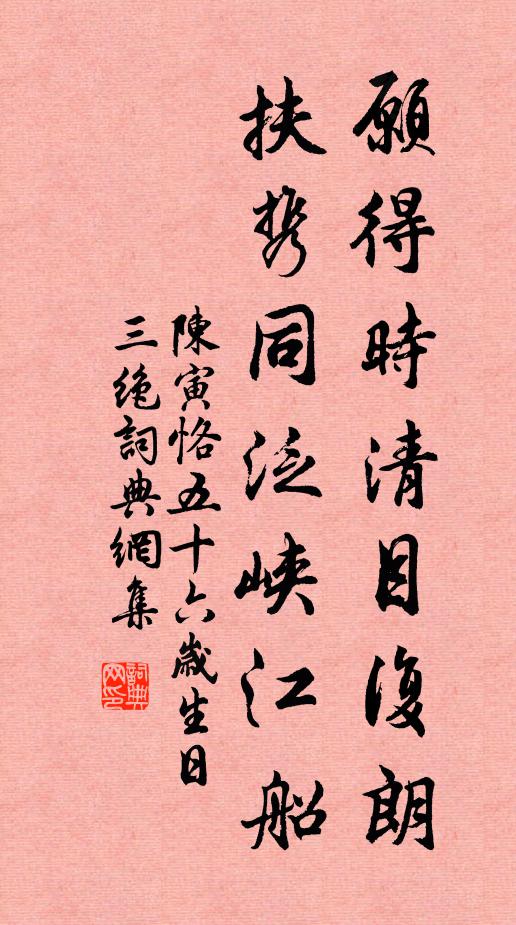 願得時清目復朗
扶携同泛峽江船
陳寅恪五十六歲生日
三绝詞典網集
詞典网印